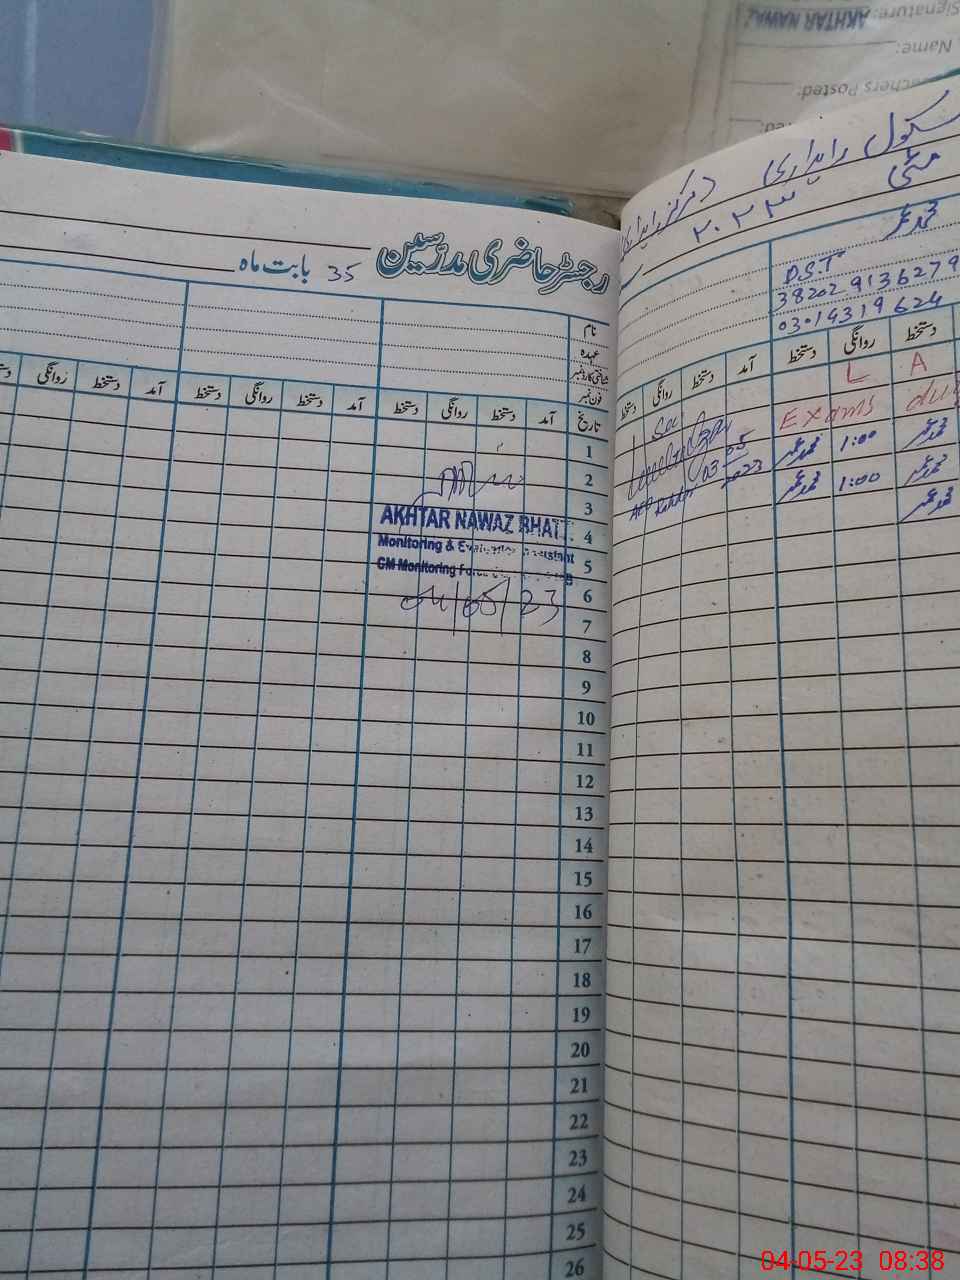 Signature:
AKHTAR NAWAZ
Name:
Teachers Posted:
سکول راہداری (مرکز راہداری
مئی ۲۰۲۳
رجسٹر حاضری مدرسین
بابت ماہ 35
نام
عہدہ
شناختی کارڈ نمبر
فون نمبر
تاریخ آمد دستخط روانگی دستخط آمد دستخط روانگی دستخط آمد دستخط روانگی دستخط
محمد عمر
P.S.T
38202 9136279
03014319624
دستخط روانگی دستخط آمد دستخط روانگی دستخط
A L
Exams
محمد عمر 1:00 محمد عمر
محمد عمر 1:00 محمد عمر
محمد عمر
03-05
2023
AKHTAR NAWAZ BHATTI
Monitoring & Evaluation Assistant
CM Monitoring Force
04/05/23
1
2
3
4
5
6
7
8
9
10
11
12
13
14
15
16
17
18
19
20
21
22
23
24
25
26
04-05-23 08:38